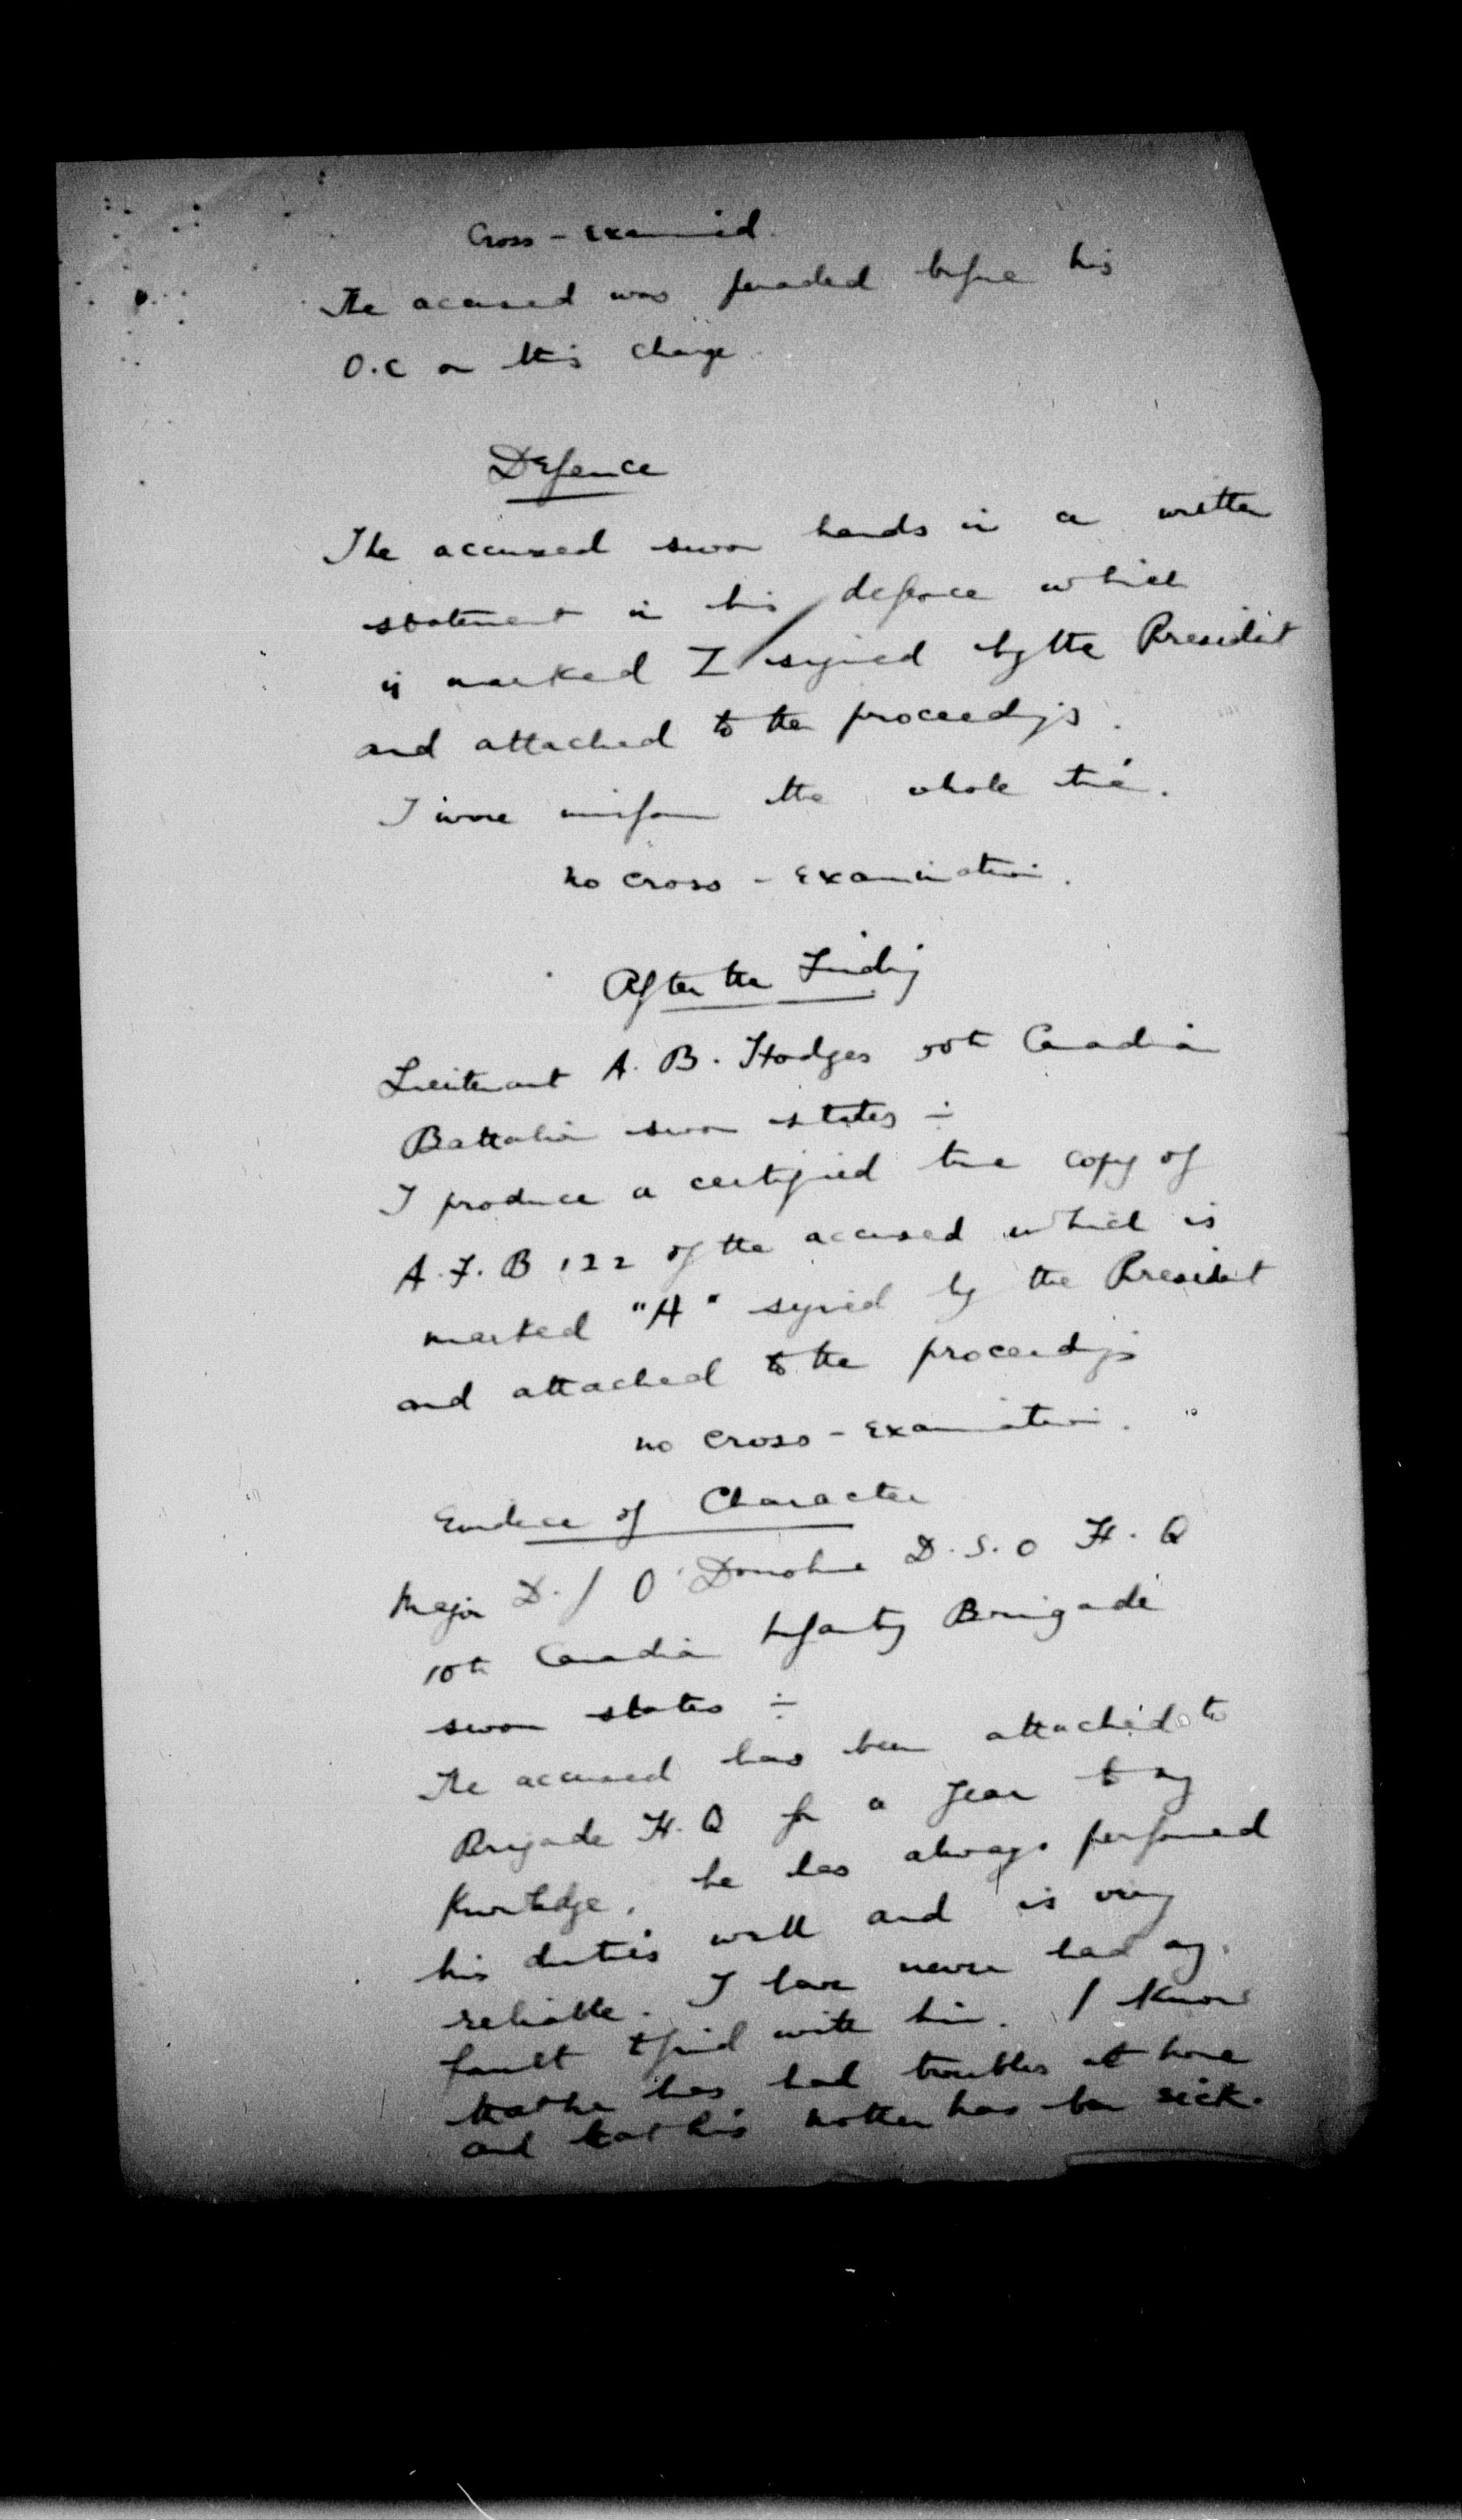 Cross-Examined.
The accused was paraded before his
O.C on this charge.
Defence
The accused sworn hands in a written
statement in his defence which
is marked Z signed by the President
and attached to the proceedings.
I wore uniform the whole time.
No cross-Examination.
After the Finding
Lieutenant A. B. Hodges 50th Canadian
Battalion sworn states ÷
I produce a certified true copy of
A.F. B 122 of the accused which is
marked "H" signed by the President
and attached to the proceedings
no cross-Examination.
Evidence of Character
Major D. J O'Donohue D.S.O H.Q
10th Canadian Infantry Brigade
sworn states ÷
The accused has been attached to
Brigade H.Q for a year to my
knowledge, he has always performed
his duties well and is very
reliable. I have never had any
fault to find with him. I know
that he has had troubles at home
and that his mother has been sick.